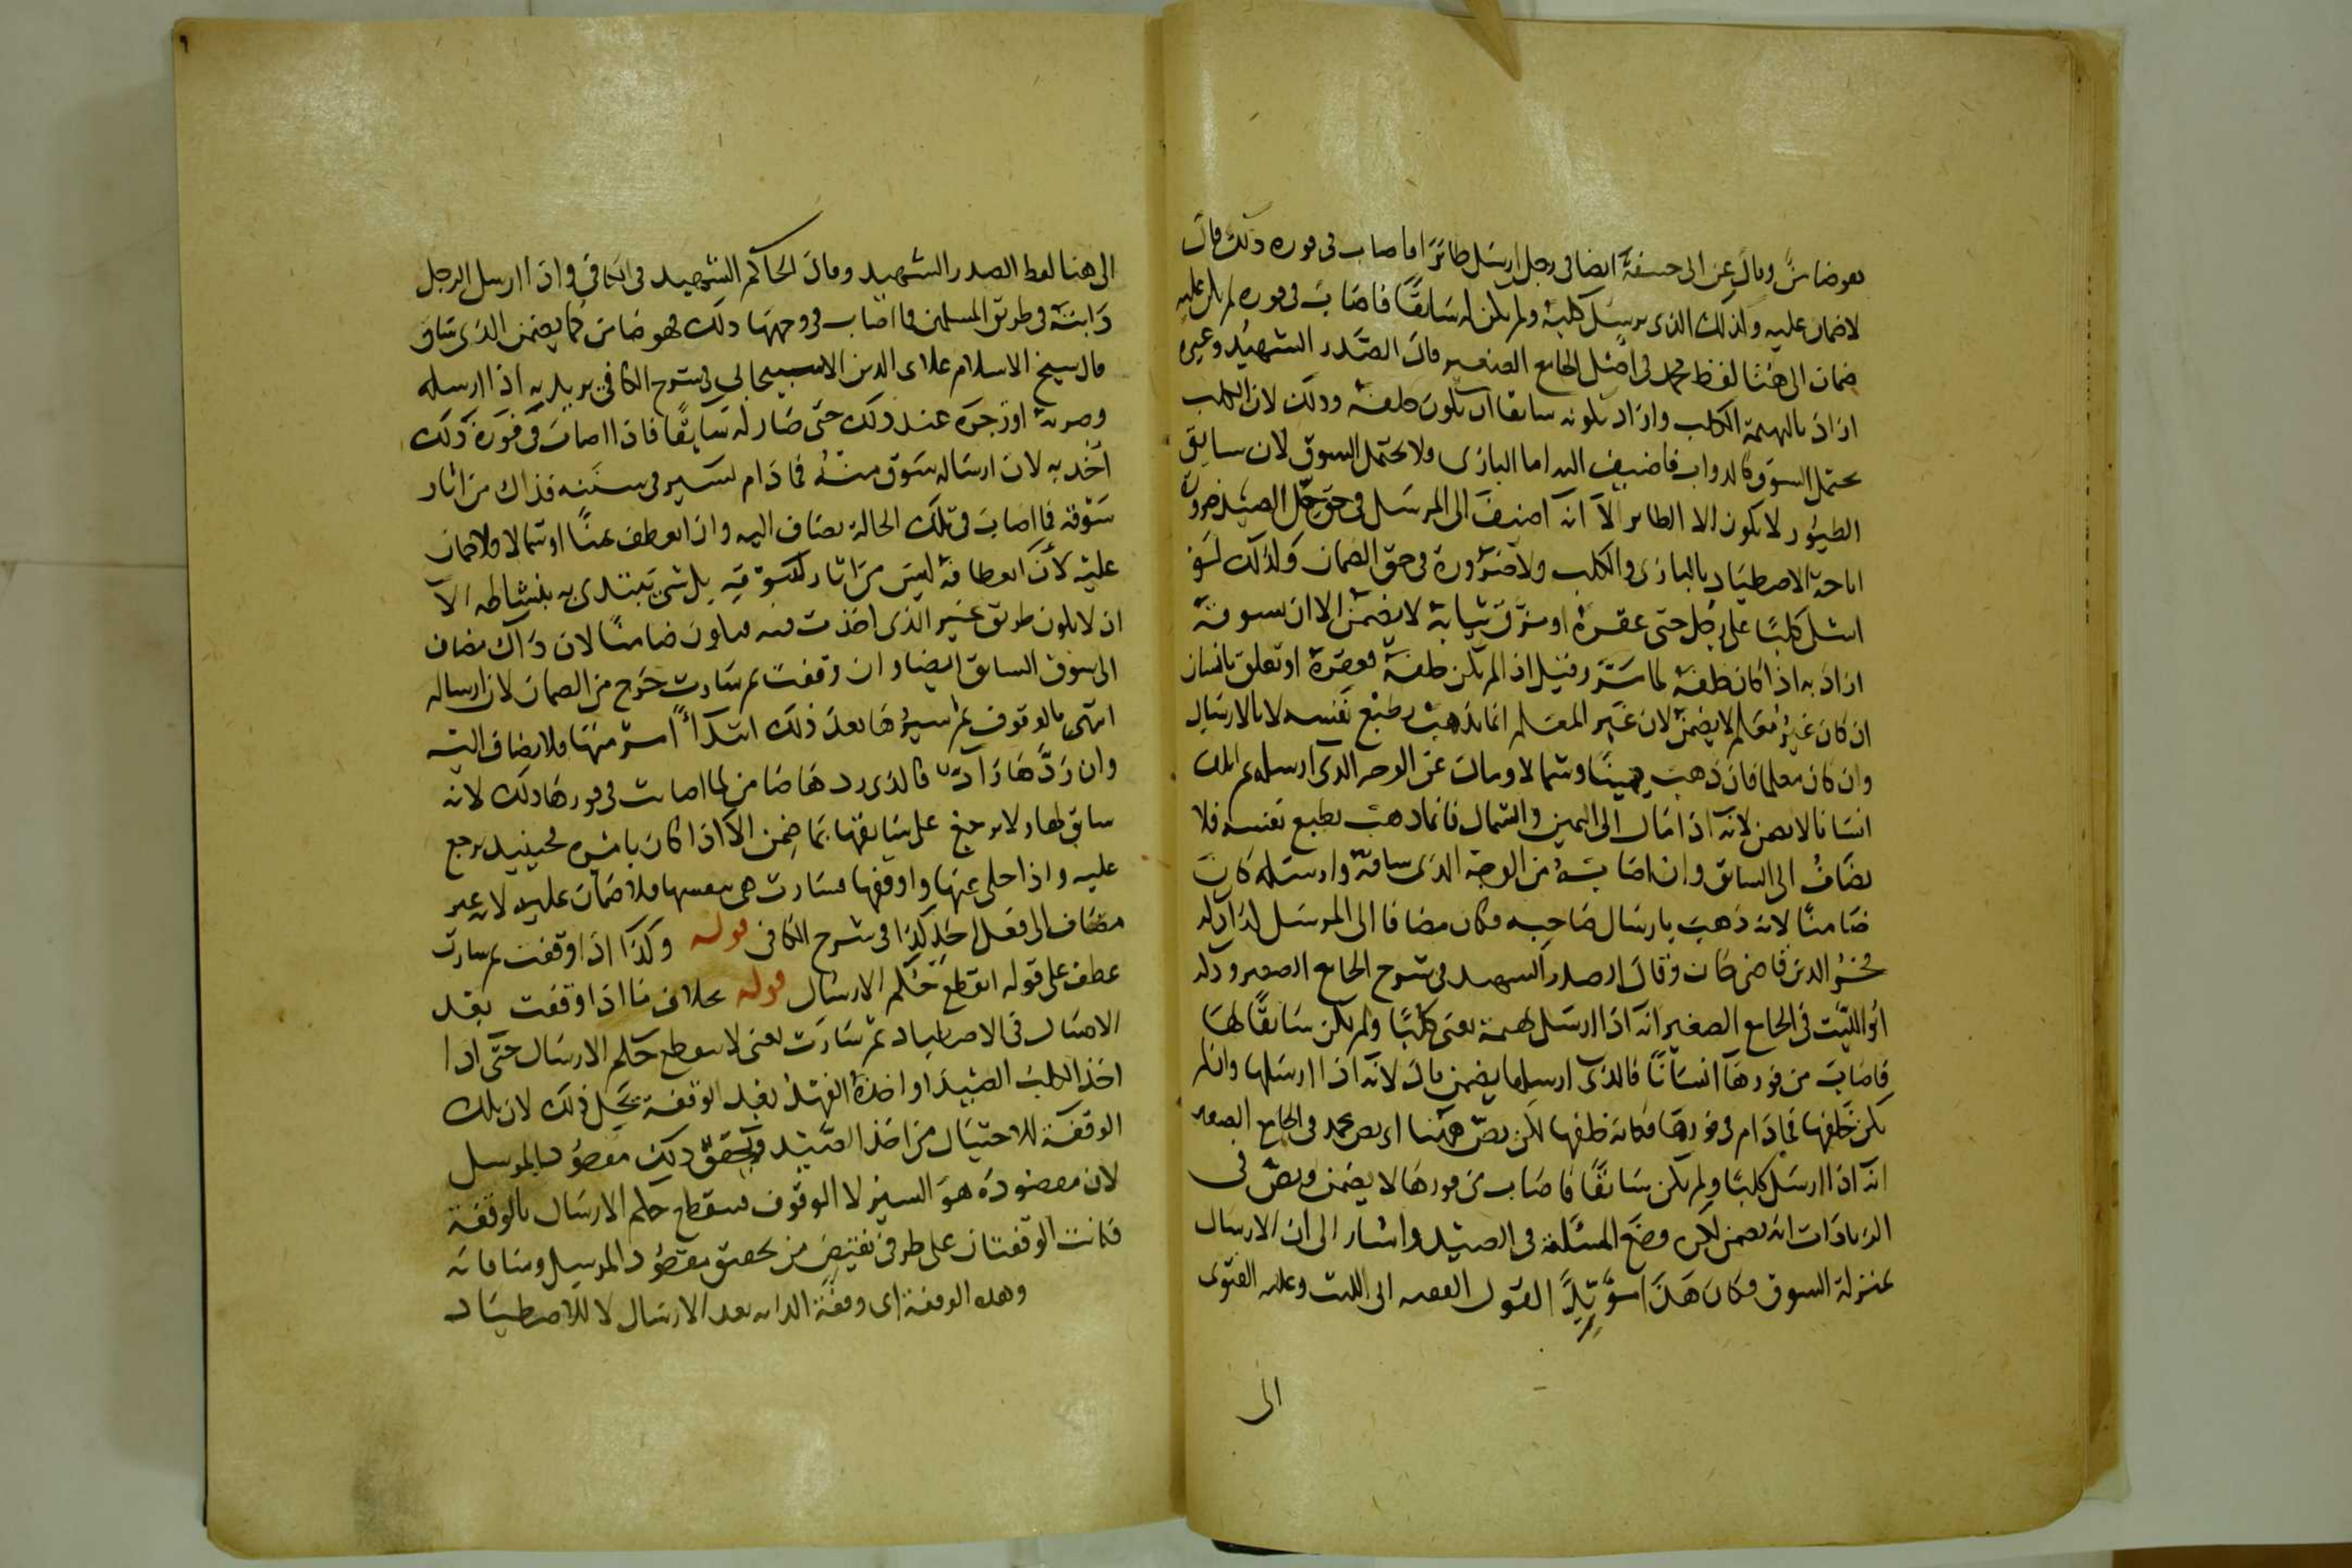 فهو ضامن وقال عن ابى حنيفة ايضا فى رجل ارسل طائرا فاصاب فى فوره ذلك قال
لا ضمان عليه وكذلك الذى يرسل كلبه ولم يكن له سائقا فاصاب فى فوره لم يكن عليه
ضمان الى هنا لفظ محمد فى اصل الجامع الصغير قال الصدر الشهيد وغيره
اراد بالبهيمة الكلب واراد بكونه سائقا ان يكون خلفه وذلك لان الكلب
يحتمل السوق كالدواب فاضيف اليه اما البازى ولا يحتمل السوق لان سايق
الطيور لا يكون الا الطاير الا انه اضيف الى المرسل فى حق حل الصيد ضرورة
اباحة الاصطياد بالبازى والكلب ولا ضرورة فى حق الضمان وكذلك لو
اشلى كلبا على رجل حتى عقره او مزق ثيابه لا يضمن الا ان يسوقه
اراد به اذا كان خلفه لما مر وقيل اذا لم يكن خلفه فعقره او تعلق بانسان
ان كان غير معلم لا يضمن لان غير المعلم انما يذهب بطبع نفسه لا بالارسال
وان كان معلما فان ذهب يمينا وشمالا ومال عن الوجه الذى ارسله ثم اتلف
انسانا لا يضمن لانه اذا مال الى اليمين والشمال فانما ذهب بطبع نفسه فلا
يضاف الى السائق وان اصابه من الوجه الذى ساقه وارسله كان
ضامنا لانه ذهب بارسال صاحبه فكان مضافا الى المرسل كذا ذكره
فخر الدين قاضى خان وقال الصدر الشهيد فى شرح الجامع الصغير وذكر
ابو الليث فى الجامع الصغير انه اذا ارسل بهيمة يعنى كلبا ولم يكن سائقا لها
فاصاب من فورها انسانا فالذى ارسلها يضمن قال لانه اذا ارسلها وان لم
يكن خلفها فما دام فى فورها فكانه خلفها لكن نص ههنا اى نص محمد فى الجامع الصغير
انه اذا ارسل كلبا ولم يكن سائقا فاصاب من فورها لا يضمن ونص فى
الزيادات انه يضمن لكن وضع المسئلة فى الصيد واشار الى ان الارسال
بمنزلة السوق وكان هذا مؤيدا لقول الفقيه ابى الليث وعليه الفتوى
الى
٩
الى هنا لفظ الصدر الشهيد وقال الحاكم الشهيد فى الكافى واذا ارسل الرجل
دابته فى طريق المسلمين فما اصاب فى وجهها ذلك فهو ضامن كما يضمن الذى ساق
قال شيخ الاسلام علاء الدين الاسبيجابى فى شرح الكافى يريد به اذا ارسله
وضربه او زجره عند ذلك حتى صار له سائقا فاذا اصاب فى فوره ذلك
اخذ به لان ارساله سوق منه فما دام يسير فى سننه فذاك من اثار
سوقه فما اصاب فى تلك الحالة يضاف اليه وان انعطف يمنا او شمالا فلا ضمان
عليه لان انعطافه ليس من اثار سوقه بل شئ يبتدئ به بنشاطه الا
ان لا يكون طريق غير الذى اخذت فيه فيكون ضامنا لان ذاك مضاف
الى سوق السائق ايضا وان وقفت ثم سارت خرج من الضمان لان ارساله
انتهى بالوقوف ثم سيرها بعد ذلك ابتداء امر منها فلا يضاف اليه
وان ردها راد فالذى ردها ضامن لما اصابت فى فورها ذلك لانه
سائق لها ولا يرجع على سائقها بما ضمن الا اذا كان بامره فحينيذ يرجع
عليه واذا خلى عنها واوقفها فسارت هى بنفسها فلا ضمان عليه لانه غير
مضاف الى فعل احد كذا فى شرح الكافى قوله وكذا اذا وقفت ثم سارت
عطف على قوله انقطع حكم الارسال قوله بخلاف ما اذا وقفت بعد
الارسال فى الاصطياد ثم سارت يعنى لا ينقطع حكم الارسال حتى اذا
اخذ الكلب الصيد او اخذه الفهد بعد الوقفة يحل ذلك لان تلك
الوقفة للاحتيال من اخذ الصيد وتحقق ذلك مقصود المرسل
لان مقصوده هو السير لا الوقوف فينقطع حكم الارسال بالوقفة
فكانت الوقفتان على طرفى نقيض من تحقق مقصود المرسل ومنافاته
وهذه الوقفة اى وقفة الدابة بعد الارسال لا للاصطياد